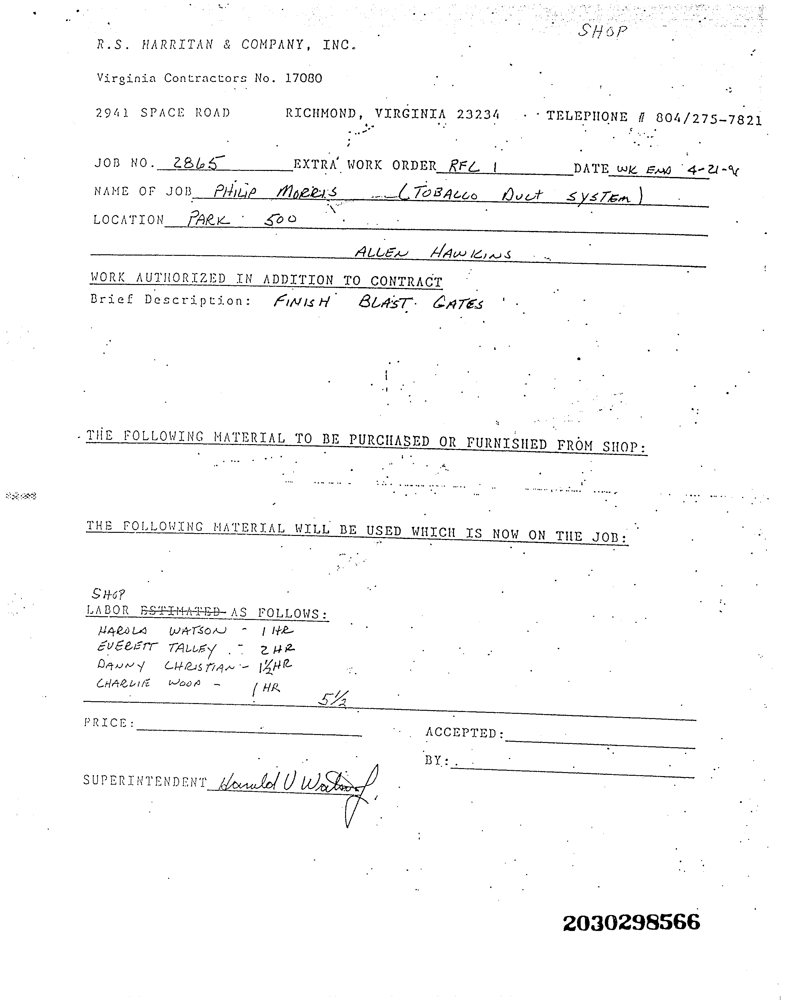 SHOP
R.S. HARRITAN & COMPANY, INC.
Virginia Contractors No. 17080
2941 SPACE ROAD RICHMOND, VIRGINIA 23234 TELEPHONE # 804/275-7821
JOB NO. 2865 EXTRA WORK ORDER RFL 1 DATE WK END 4-21-
NAME OF JOB PHILIP MORRIS (TOBACCO DUCT SYSTEM)
LOCATION PARK 500
ALLEN HAWKINS
WORK AUTHORIZED IN ADDITION TO CONTRACT
Brief Description: FINISH BLAST GATES
THE FOLLOWING MATERIAL TO BE PURCHASED OR FURNISHED FROM SHOP:
THE FOLLOWING MATERIAL WILL BE USED WHICH IS NOW ON THE JOB:
SHOP
LABOR ESTIMATED AS FOLLOWS:
HAROLD WATSON - 1 HR
EVERETT TALLEY - 2 HR
DANNY CHRISTIAN - 1½ HR
CHARLIE WOOD - 1 HR
5½
PRICE:
ACCEPTED:
BY:
SUPERINTENDENT Harold V Watson
2030298566